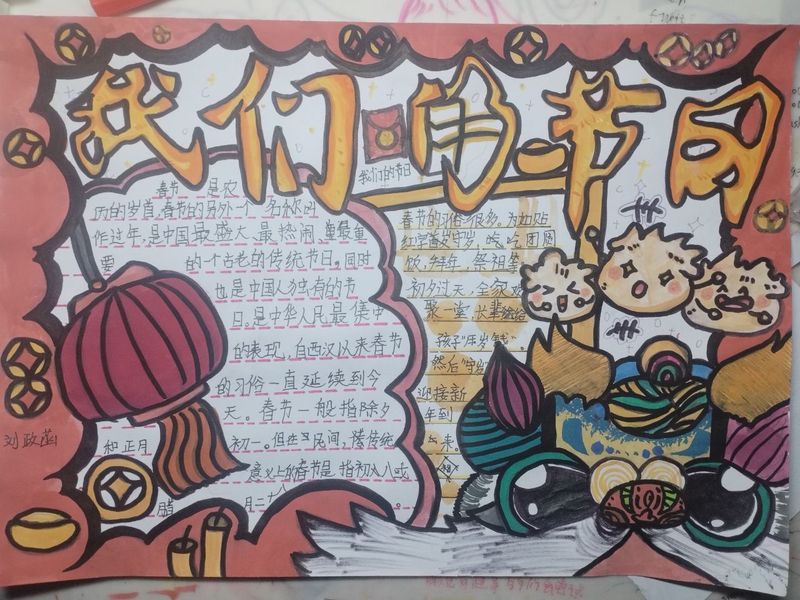 我们的节日
我们的节日
春节 是农
历的岁首,春节的另外一个 名称叫
作过年,是中国最盛大、最热闹、最重
要 的一个古老的传统节日。同时
也是中国人独有的节
日。是中华人民最集中
的表现,自西汉以来春节
的习俗一直延续到今
天。春节一般指除夕
和正月 初一。但在民间,传统
意义上的春节是指初八或
腊 月二十
春节的习俗很多。为如贴
年夜饭,拜年,祭祖等
初夕过天,全家欢
聚一堂,长辈
孩子"压岁钱"。
然后"守岁"
迎接新
年到
来。
刘政菡